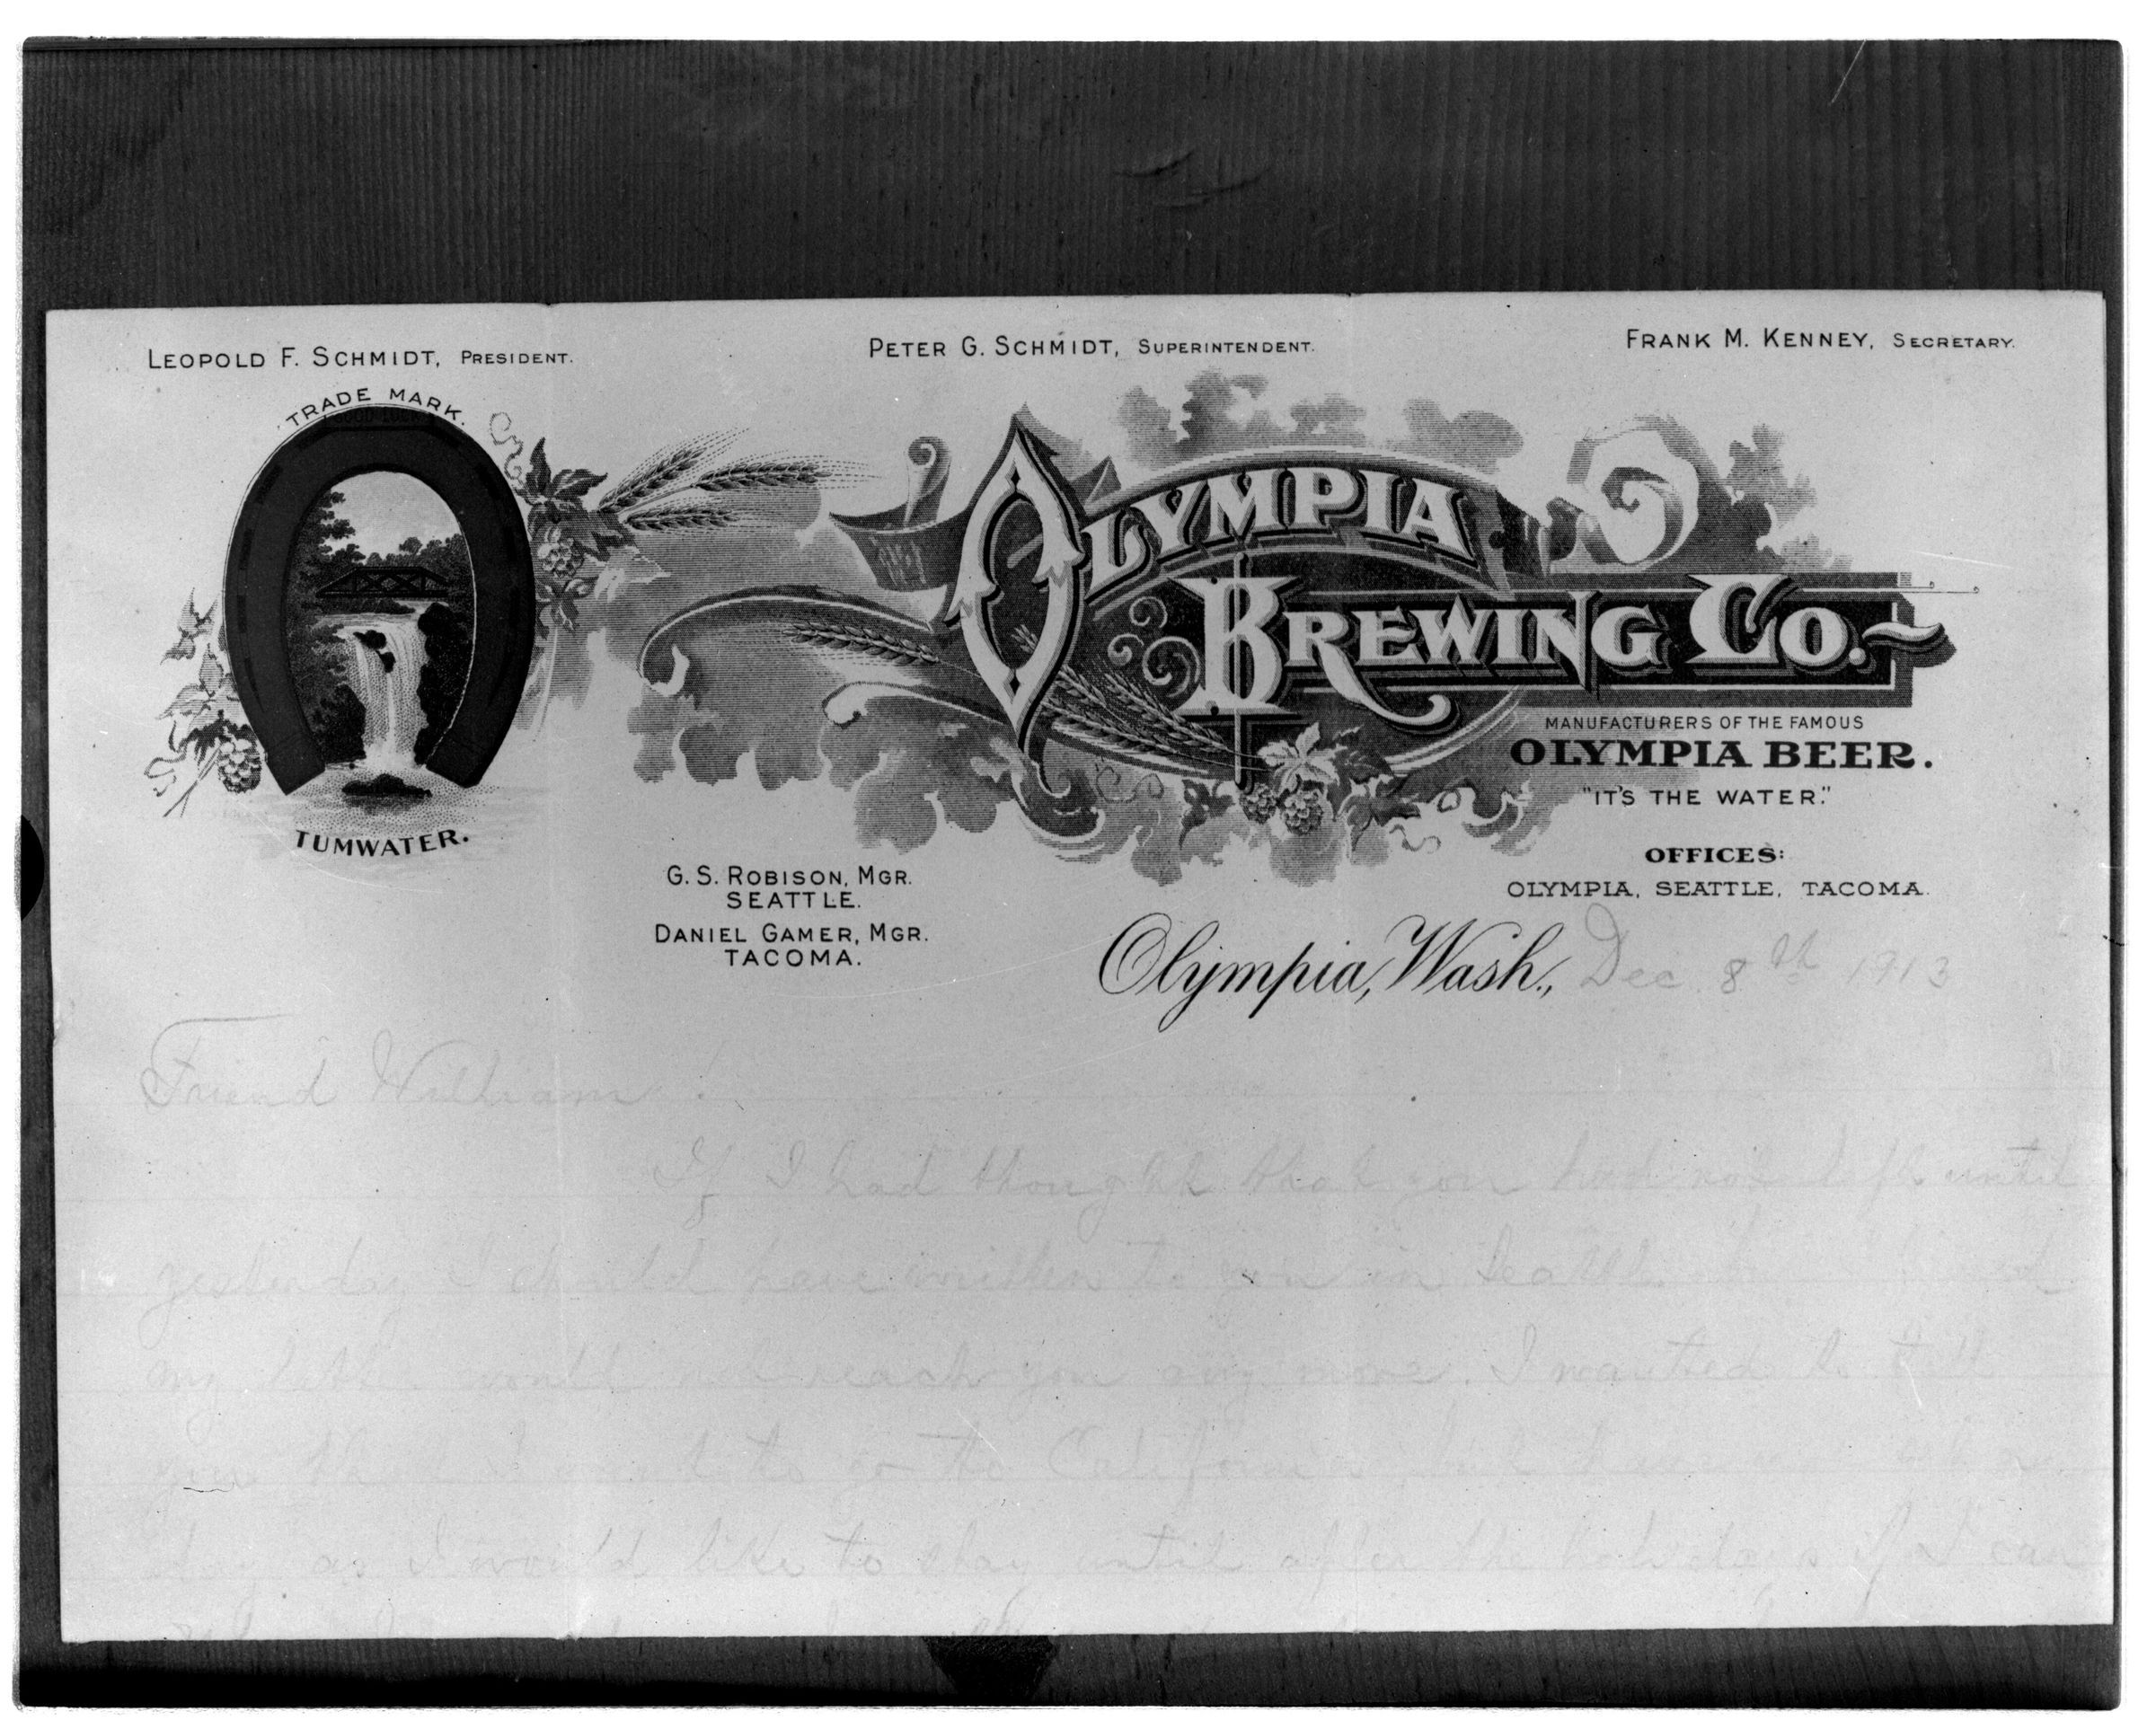 LEOPOLD F. SCHMIDT, PRESIDENT.
PETER G. SCHMIDT, SUPERINTENDENT.
FRANK M. KENNEY, SECRETARY.
TRADE MARK.
TUMWATER.
OLYMPIA
BREWING CO.
MANUFACTURERS OF THE FAMOUS
OLYMPIA BEER.
"IT'S THE WATER."
OFFICES:
OLYMPIA, SEATTLE, TACOMA.
G. S. ROBISON, MGR.
SEATTLE.
DANIEL GAMER, MGR.
TACOMA.
Olympia, Wash., Dec. 8th 1913
Friend William
If I had thought that you had not left until
yesterday I should have written to you in Seattle
my letter would not reach you any more. I wanted to tell
you that I to go to California, but
day as I would like to stay until after the holidays if I can